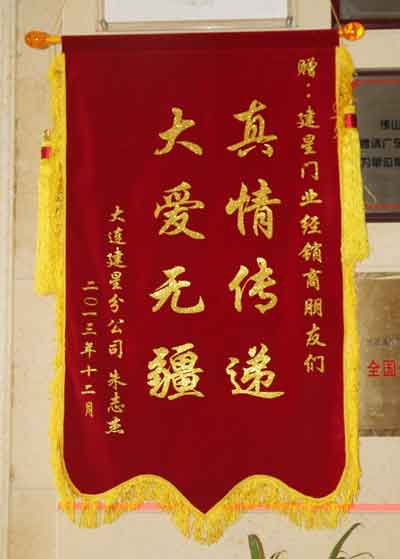 赠：建星门业经销商朋友们
真情传递
大爱无疆
大连建星分公司 朱志杰
二〇一三年十二月
佛山
全国